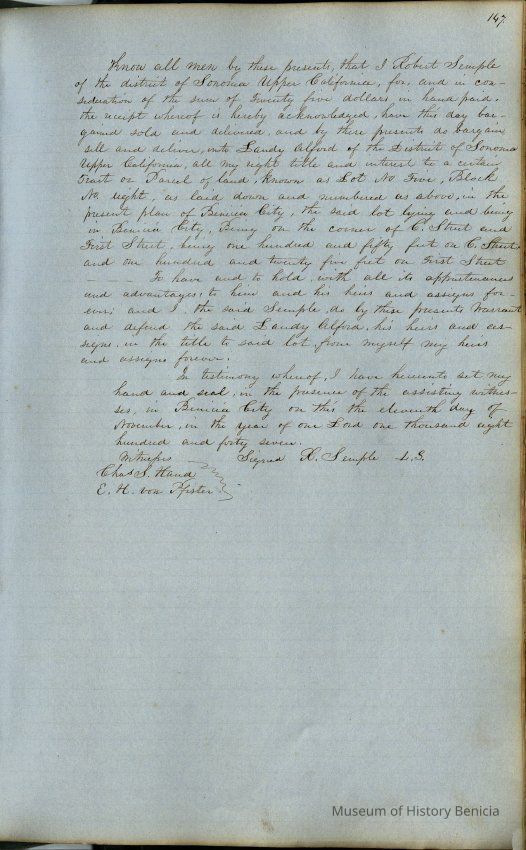 147.
Know all men by these presents, that I Robert Semple
of the district of Sonoma Upper California, for, and in con-
sideration of the sum of Twenty five dollars in hand paid,
the receipt whereof is hereby acknowledged, have this day bar-
gained sold and delivered, and by these presents do bargain
sell and deliver, unto Landy Alford of the District of Sonoma
Upper California, all my right title and interest to a certain
Tract or Parcel of land, known as Lot No Five, Block
No. eight, as laid down and numbered as above, in the
present plan of Benicia City, the said lot lying and being
in Benicia City, Being on the corner of C. Street and
First Street, being one hundred and fifty feet on C. Street
and one hundred and twenty five feet on First Street
To have and to hold, with all its appurtenances
and advantages, to him and his heirs and assigns for-
ever; and I, the said Semple, do by these presents Warrant
and defend the said Landy Alford, his heirs and as-
signs, in the title to said lot, from myself my heirs
and assigns forever.
In testimony whereof, I have hereunto set my
hand and seal, in the presence of the assisting witnes-
ses, in Benicia City on this the eleventh day of
November, in the year of our Lord one thousand eight
hundred and forty seven.
Witness Signed R. Semple L.S
Chas S. Hand
E. H. von Pfister
Museum of History Benicia